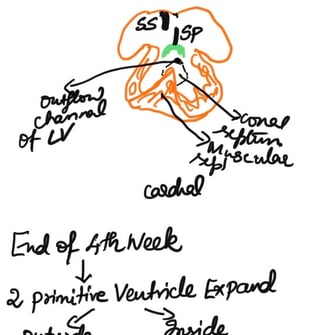 SS SP
outflow
channel
of LV
conal
septum
Muscular
septum
End of 4th Week
2 primitive Ventricle Expand
outside Inside